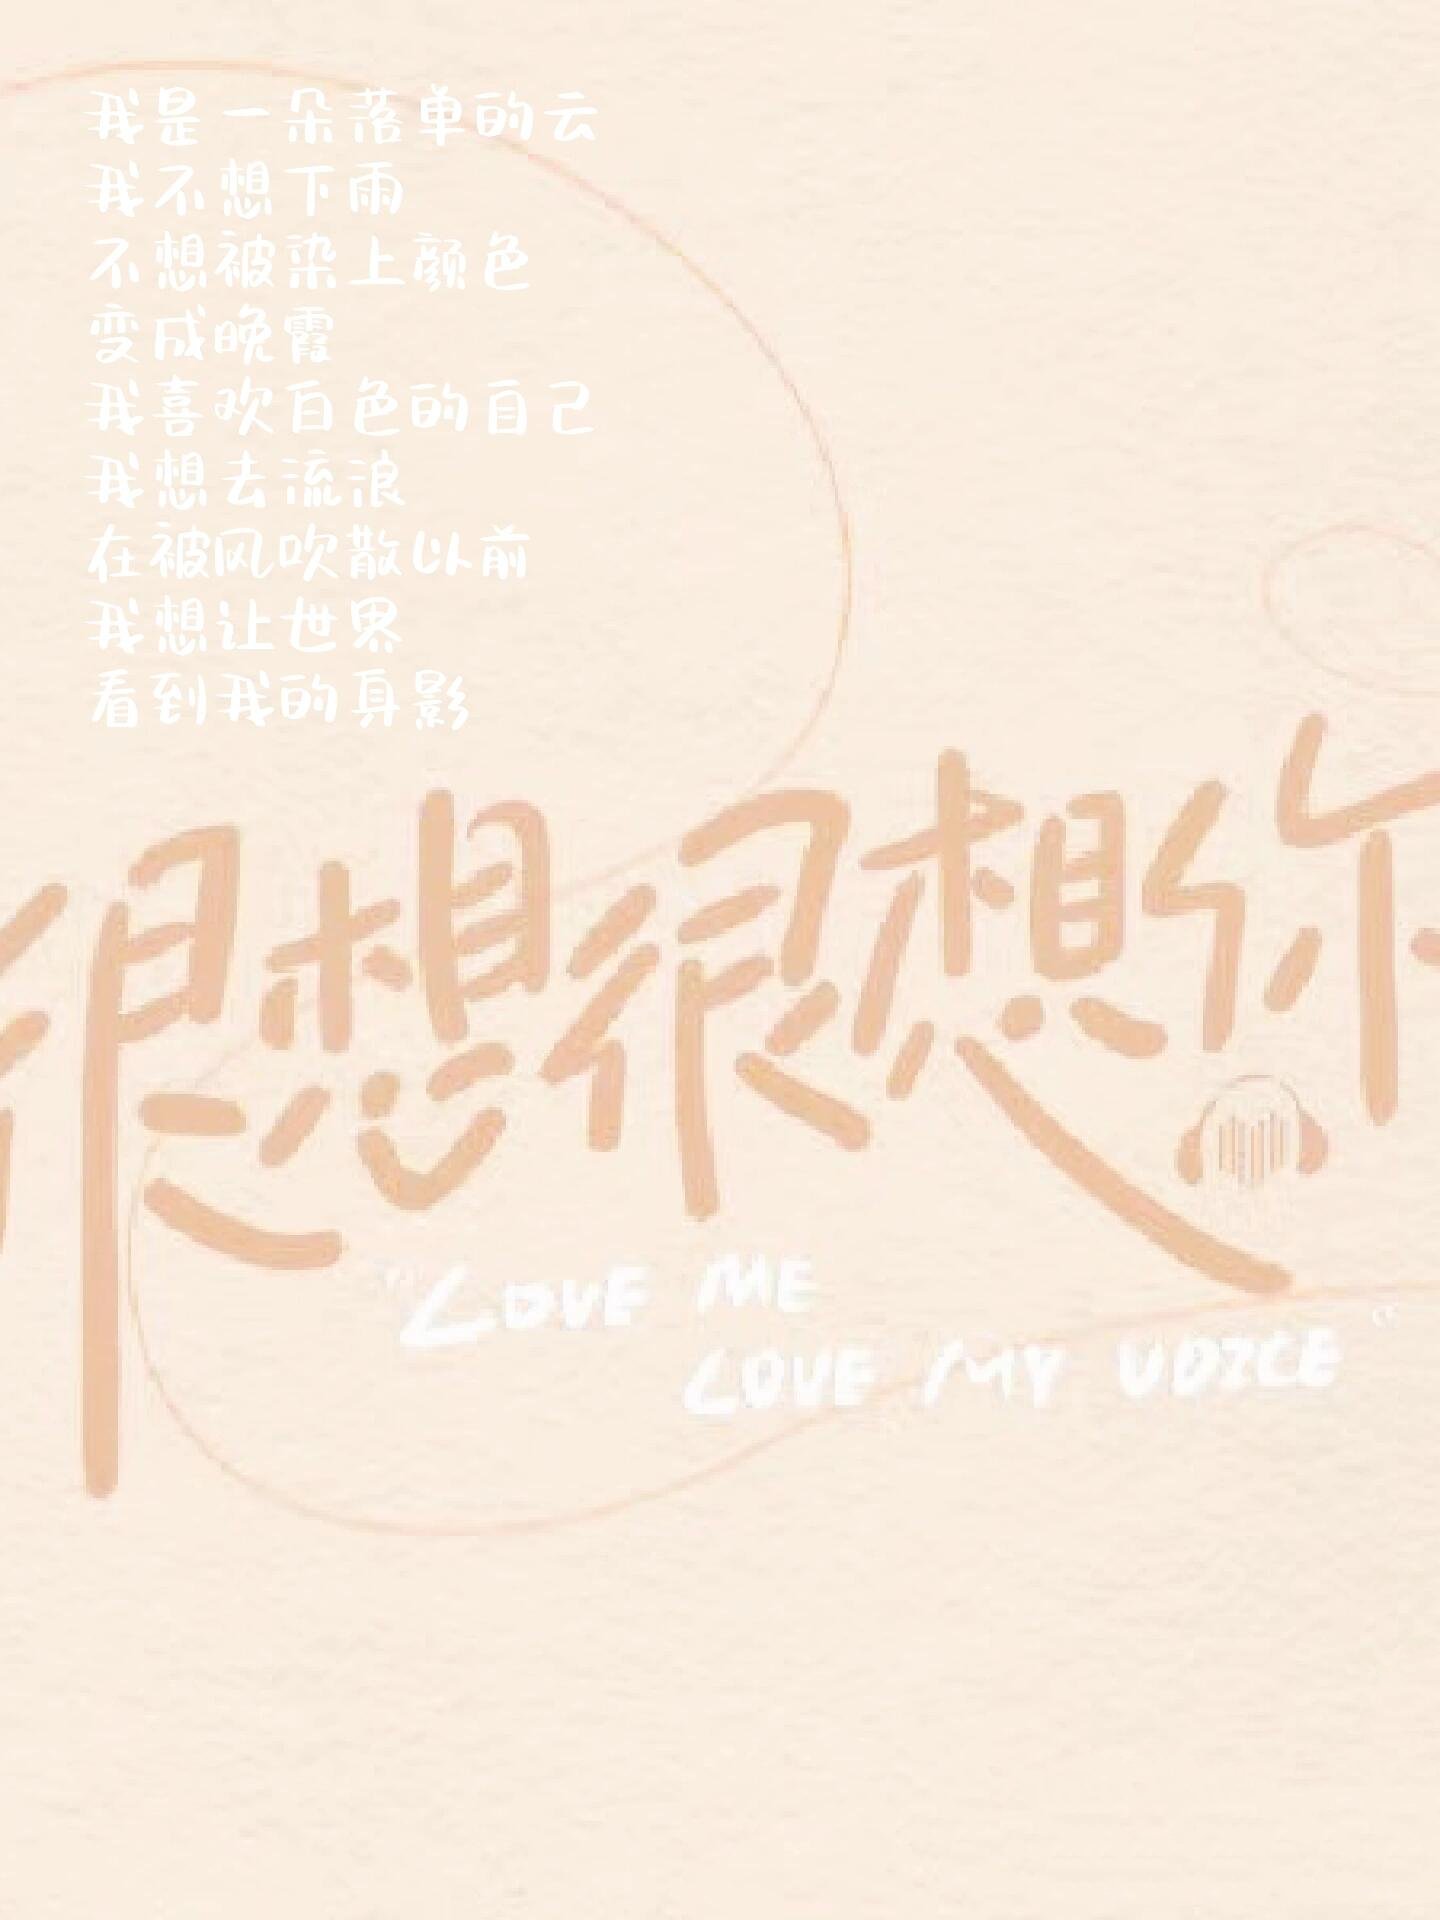 我是一朵落单的云
我不想下雨
不想被染上颜色
变成晚霞
我喜欢白色的自己
我想去流浪
在被风吹散以前
我想让世界
看到我的身影
很想很想你
"LOVE ME
LOVE MY VOICE"